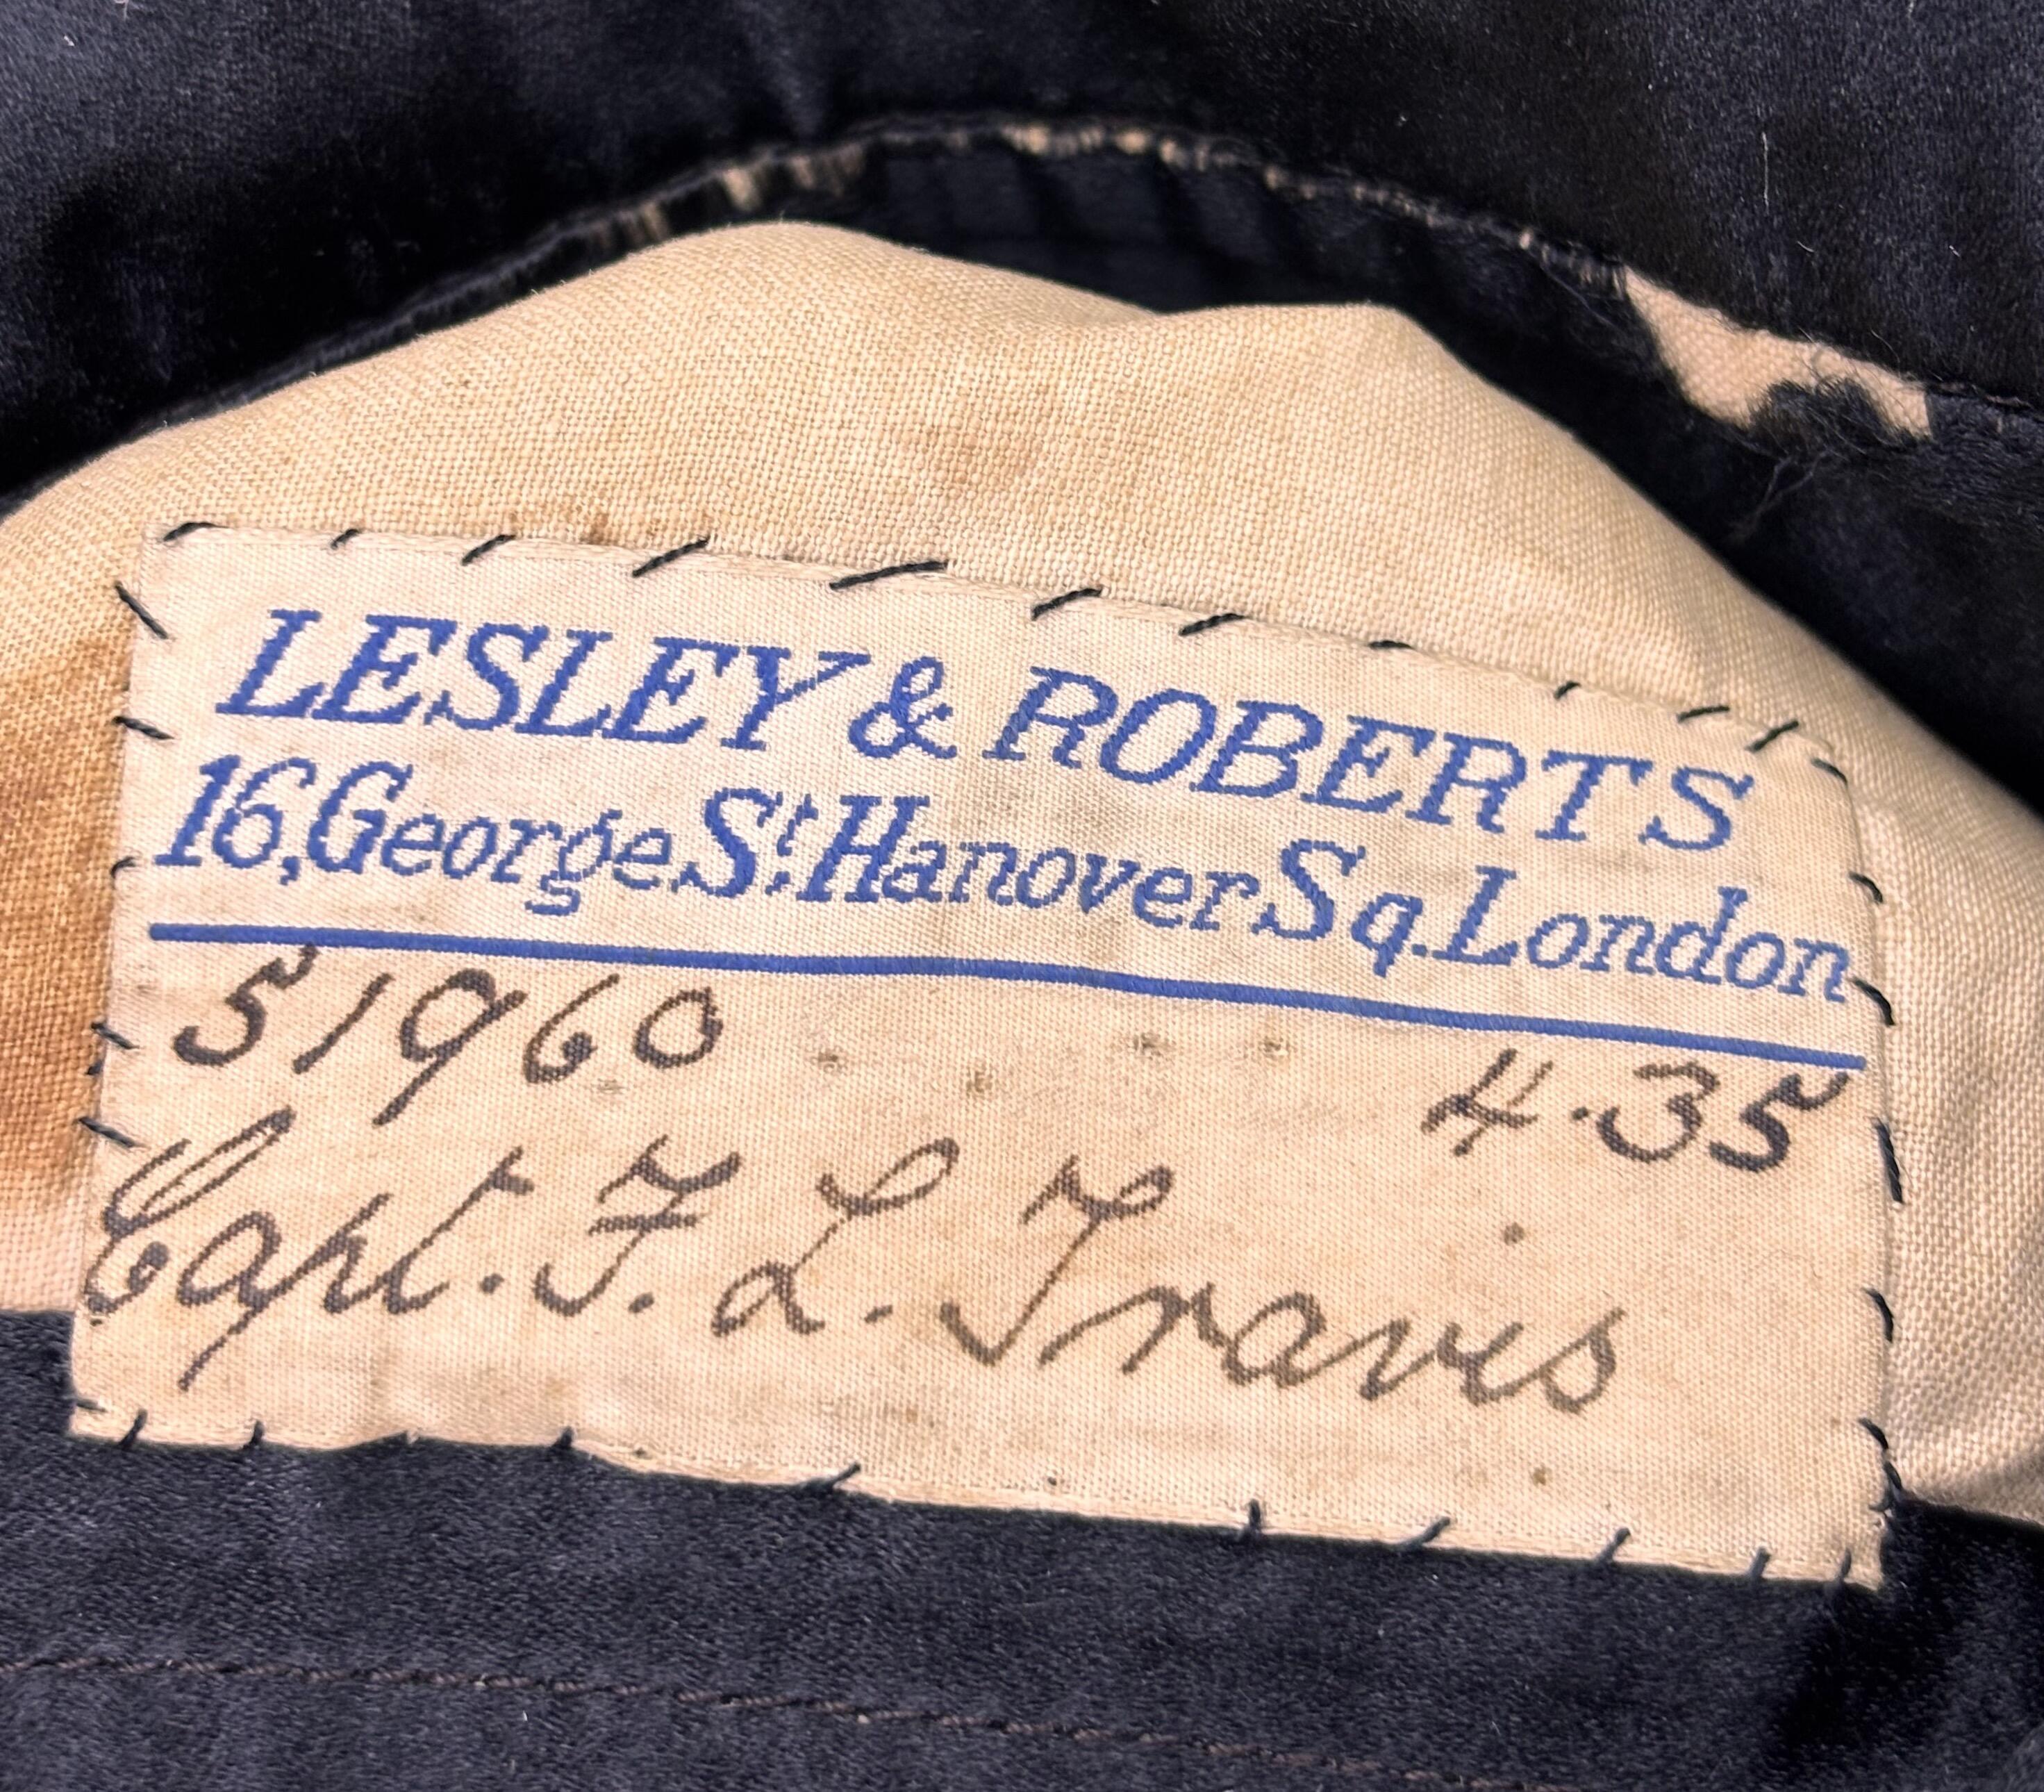 LESLEY & ROBERTS
16, George St. Hanover Sq. London
51960 4.35
Capt. F. L. Travis